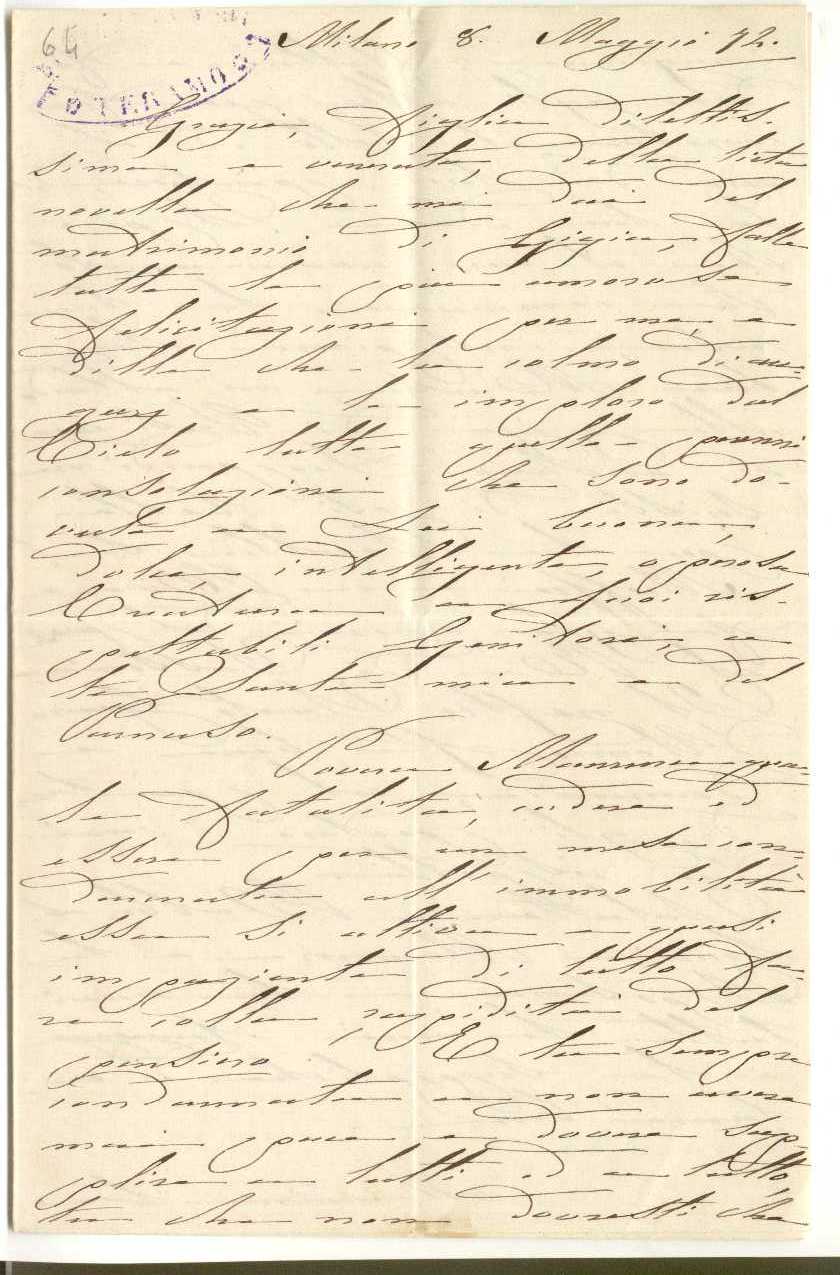 64
TERAMO
Milano 8. Maggio 72.
Grazie, Figlia Dilettis-
sima e venerata, della lieta
novella che mi dai del
matrimonio di Gigia, falle
tutte le più amorose
felicitazioni per me, e
dille che la colmo di au-
gurj e le imploro dal
Cielo tutte quelle
consolazioni che sono do-
vute a Lei buona,
dolce, intelligente, operosa
Creatura a suoi ris-
pettabili Genitori, a
te Santa mia e del
Povera Mamma qua-
le fatalità, cadere ed
essere per un mese con-
dannata all'immobilità
essa si attiva e quasi
impaziente di tutto fa-
re colla rapidità del
pensiero, E tu sempre
condannata a non avere
mai pace e dovere sup-
plire a tutti ed a tutto,
tu che non dovresti che